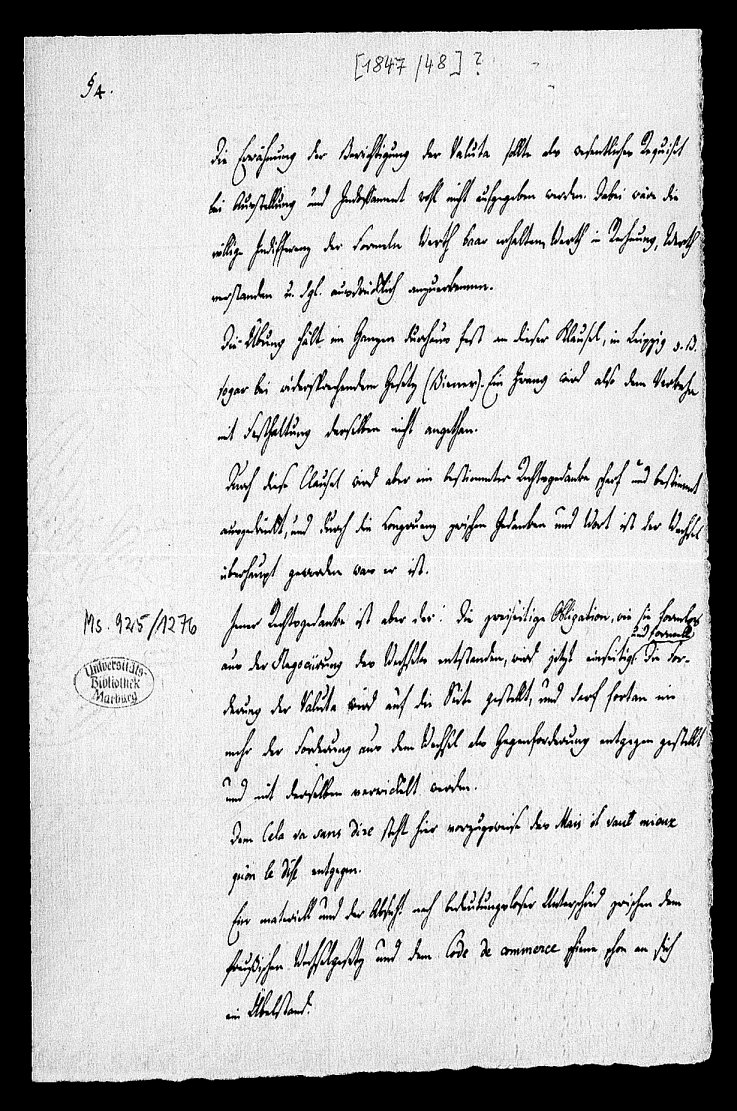 [1847/48]?
§ 4.
Die Erwähnung der Berichtigung der Valuta sollte als wesentliches Requisit
bei Ausstellung und Indossament wohl nicht aufgegeben werden. Dabei wäre die
völlige Indifferenz der Formeln Werth baar erhalten, Werth in Rechnung, Werth
verstanden u. dgl. ausdrücklich anzuerkennen.
Die Übung hält im Ganzen durchaus fest an dieser Klausel, in Leipzig z. B.
sogar bei widersprechendem Gesetz (Biener). Ein Zwang wird also dem Verkehr
mit Festhaltung derselben nicht angethan.
Durch diese Clausel wird aber ein bestimmter Rechtsgedanke scharf und bestimmt
ausgedrückt, und durch die Congruenz zwischen Gedanken und Wort ist der Wechsel
überhaupt geworden was er ist.
Jener Rechtsgedanke ist aber der: die zweiseitige Obligation, wie sie formlos
und formell
aus der Negocirung des Wechsels entstanden, wird jetzt einseitig. Die For-
derung der Valuta wird auf die Seite gestellt, und darf fortan nie
mehr der Forderung aus dem Wechsel als Gegenforderung entgegen gestellt
und mit derselben verwickelt werden.
Dem Cela va sans dire steht hier vorzugsweise das Mais il vaut mieux
qu'on le dise entgegen.
Ein materiell und der Absicht nach bedeutungsloser Unterschied zwischen dem
Preußischen Wechselgesetz und dem Code de commerce schiene schon an sich
ein Übelstand.
Ms. 925/1276
Universitäts-
Bibliothek
Marburg